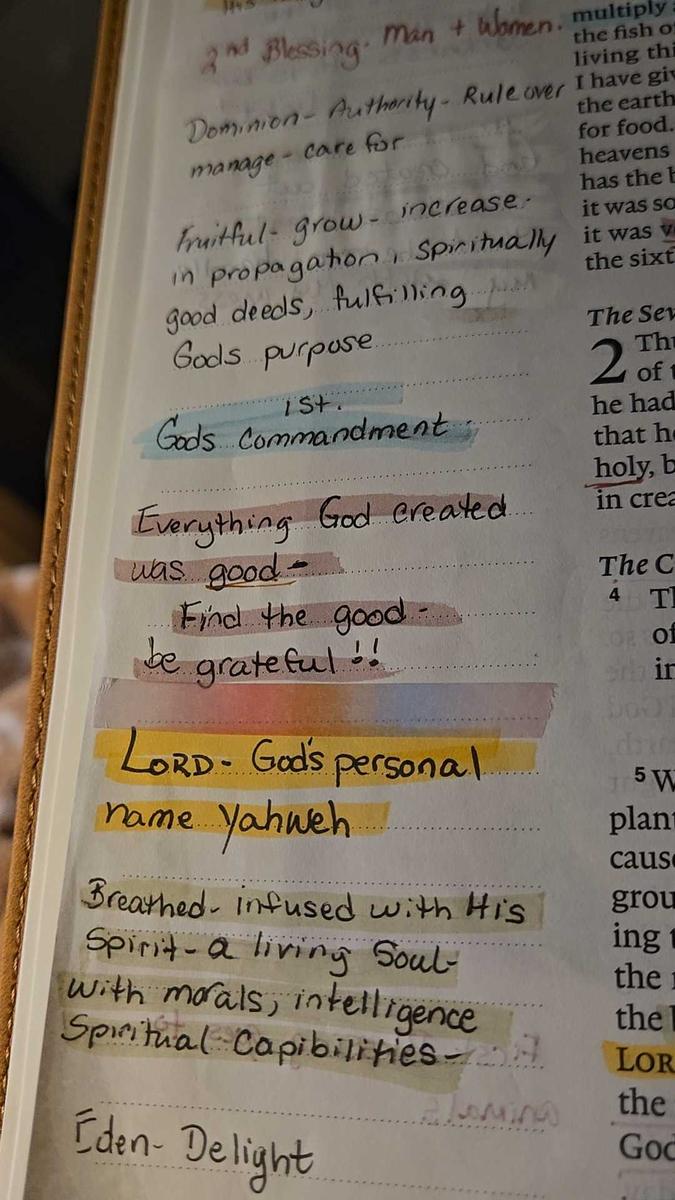 2nd Blessing. Man + Women.
Dominion - Authority - Rule over
manage - care for
Fruitful - grow - increase -
in propagation, Spiritually
good deeds, fulfilling
Gods purpose
1st.
Gods Commandment.
Everything God created
was good -
Find the good -
be grateful !!
LORD - God's personal
name Yahweh
Breathed - infused with His
Spirit - a living Soul -
with morals, intelligence
Spiritual Capibilities -
Eden - Delight
multiply
the fish
living
I have
the earth
for food.
heavens
has the
it was
it was
the
The
2
of
he had
that
holy,
in
The
4
of
in
5
the
the
the